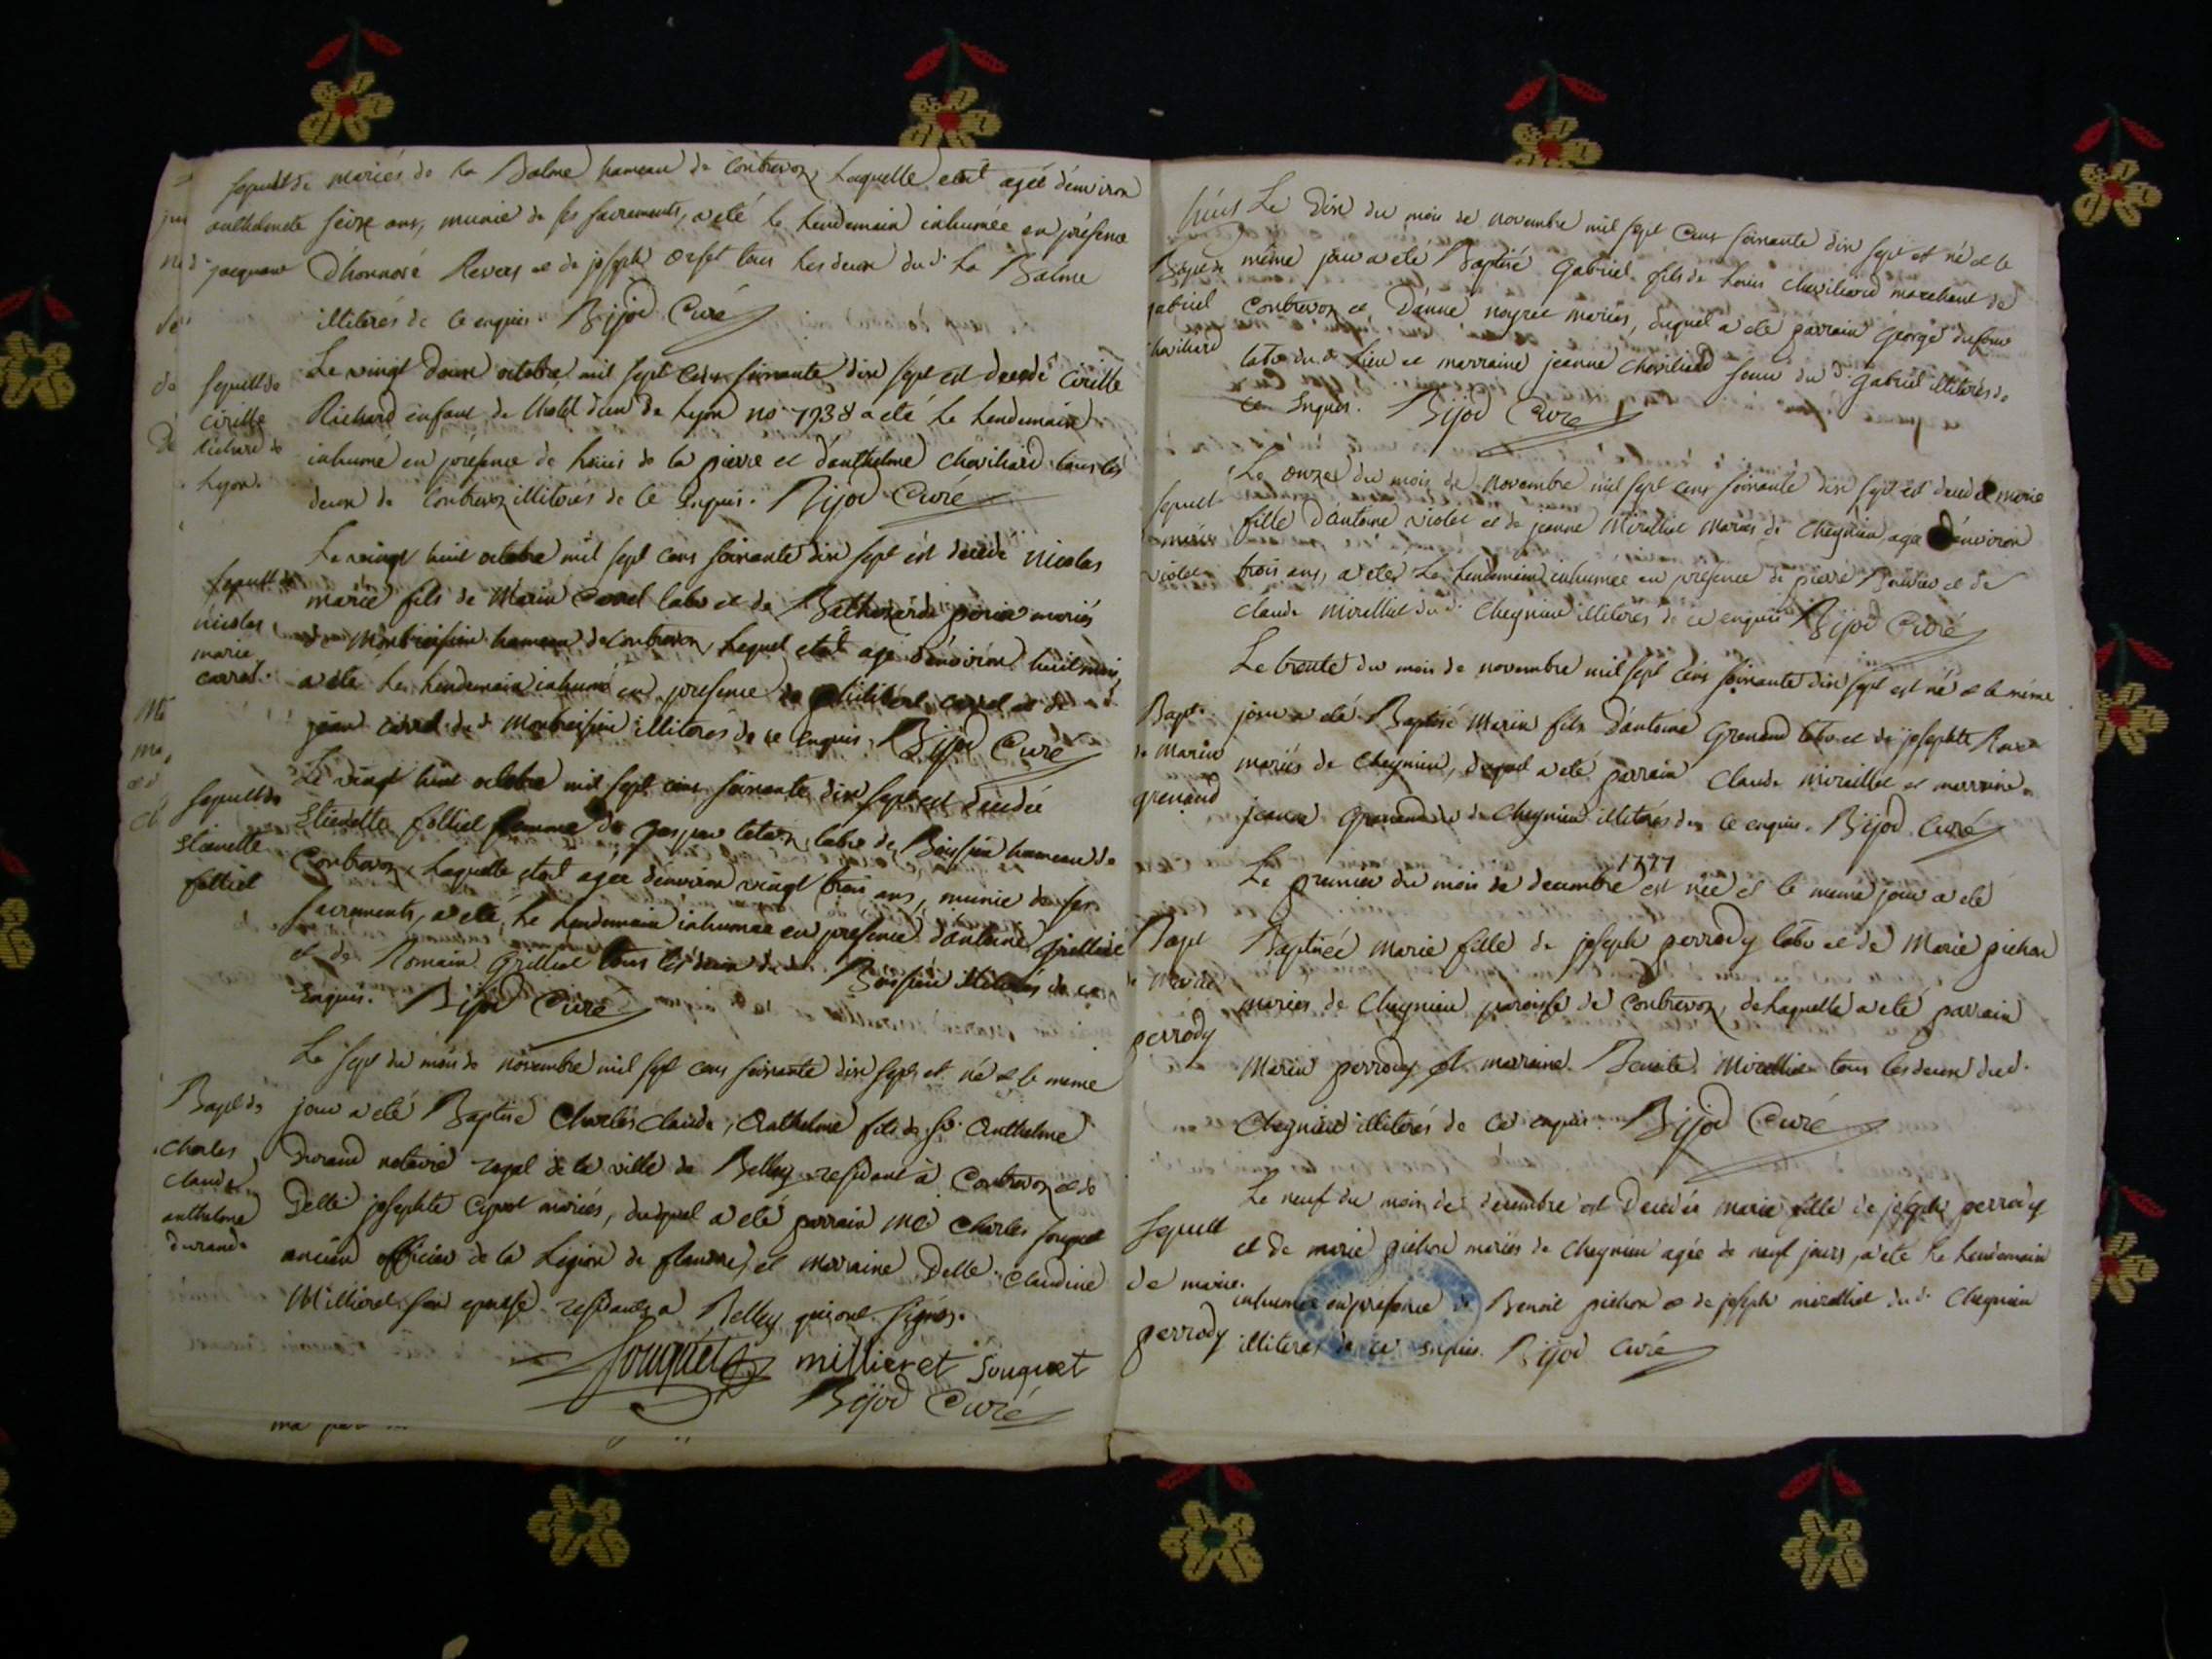 mariés de la Balme hameau de Contrevoz, laquelle etoit agée d'environ
seize ans, munie de ses sacrements, a eté le lendemain inhumée en présence
d'honnoré Revers et de joseph orset tous les deux dud. La Balme
illiterés de ce enquis. Bijod Curé
Sepult de
anthelmete
jacquant
Le vingt deux octobre mil sept cens soixante dix sept est decedé cirille
Richard enfant de l'hotel dieu de Lyon no 7938 a eté le lendemain
inhumé en présence de Louis de la pierre et d'anthelme Chaviliard tous les
deux de Contrevoz illiterés de ce Enquis. Bijod Curé
Sepult de
cirille
Richard de
Lyon.
Le vingt huit octobre mil sept cens soixante dix sept est decedé nicolas
marie fils de Marin Carrel labr et de Balthazarde perier mariés
de Montbreisieu hameau de Contrevoz, lequel etoit agé d'environ huit mois,
a été le lendemain inhumé en presence de philibert carrel et de
jean carrel dud Montbreisieu illiterés de ce enquis. Bijod Curé
Sepult de
nicolas
marie
carrel.
Le vingt huit octobre mil sept cens soixante dix sept est decedée
Etienette folliet femme de gaspar teton labr de Boissieu hameau de
Contrevoz, laquelle etoit agée d'environ vingt trois ans, munie de ses
sacrements, a eté le lendemain inhumée en presence d'antoine Grilliet
et de Romain Grilliet tous les deux dud. Boissieu illiterés de ce
Enquis. Bijod Curé
Sepult de
Etienette
folliet
Le sept du mois de novembre mil sept cens soixante dix sept est né et le meme
jour a eté Baptisé Charles Claude, Anthelme fils de sr. Anthelme
Durand notaire royal de la ville de Belley residant à Contrevoz et de
Delle josephte Cyvot mariés, duquel a eté parrain Me Charles souquet
ancien officier de la Legion de flandre, et marraine Delle Claudine
Millieret son epouse residants a Belley qui ont signés.
souquet millieret Souquet
Bijod Curé
Bapt de
Charles
Claude
anthelme
durand
Le Dix du mois de novembre mil sept cens soixante dix sept est né et le
même jour a eté Baptisé Gabriel fils de Louis Chaviliard marchant de
Contrevoz et D'anne neyret mariés, duquel a eté parrain George dufour
labr dud. Lieu et marraine jeanne Chaviliard soeur dud Gabriel illiterés de
ce Enquis. Bijod Curé
Bapt de
gabriel
chaviliard
Le onze du mois de novembre mil sept cens soixante dix sept est decedée marie
fille d'antoine violet et de jeanne Mirelliet mariés de Cheignieu, agée d'environ
trois ans, a eté Le lendemain inhumée en presence de pierre Bouvier et de
Claude Mirelliet dud. Cheignieu illiterés de ce enquis Bijod Curé
Sepult
marie
violet
Le trente du mois de novembre mil sept cens soixante dix sept est né et le même
jour a eté Baptisé Marin fils d'antoine Grenand labr et de josephte
mariés de Cheignieu, duquel a eté parrain Claude Mirelliet et marraine
jeanne Grenand de Cheignieu illiterés de ce enquis. Bijod Curé
Bapt
de Marin
grenand
1777
Le premier du mois de decembre est née et le meme jour a eté
Baptisée Marie fille de joseph perrody labr et de Marie pichon
mariés de Cheignieu paroisse de Contrevoz, de laquelle a eté parrain
Marin perrody et marraine Benoite Mirelliet tous les deux dud.
Cheignieu illiterés de ce enquis. Bijod Curé
Bapt
de marie
perrody
Le neuf du mois de decembre est Decedée marie fille de joseph perrody
et de marie pichon mariés de Cheignieu agée de neuf jours, a eté Le lendemain
inhumée en presence de Benoit pichon et de joseph mirelliet dud. Cheignieu
illiterés de ce enquis. Bijod Curé
Sepult
de marie
perrody